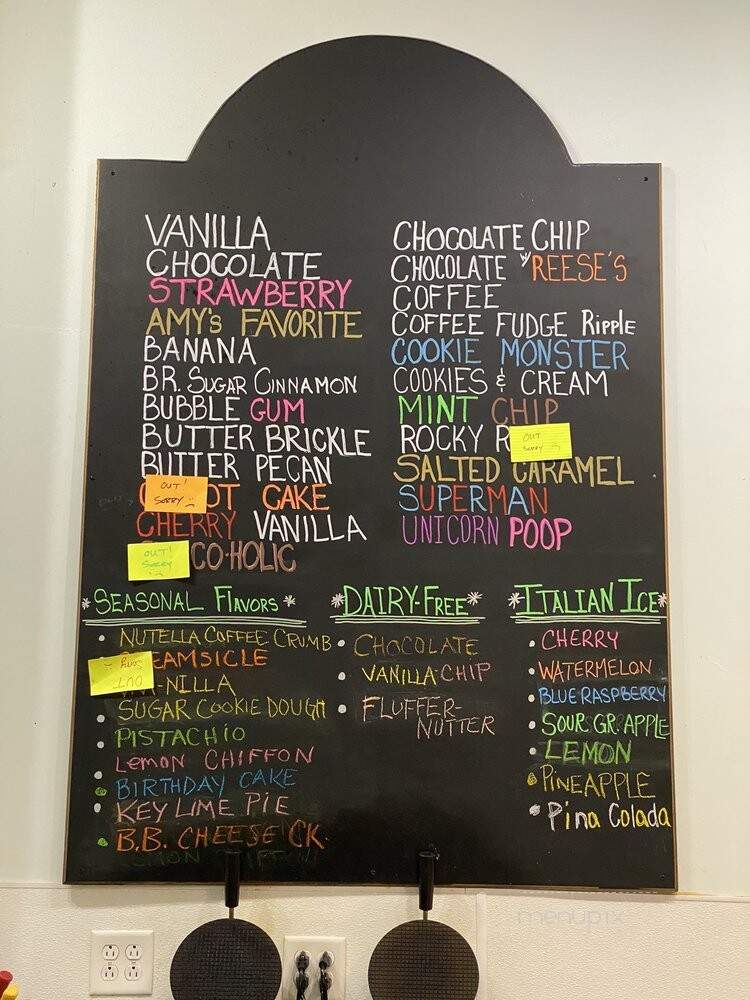 VANILLA
CHOCOLATE
STRAWBERRY
AMY's FAVORITE
BANANA
BR. SUGAR CINNAMON
BUBBLE GUM
BUTTER BRICKLE
BUTTER PECAN
OUT!
SORRY
OT CAKE
CHERRY VANILLA
OUT!
SORRY
CO-HOLIC
CHOCOLATE CHIP
CHOCOLATE w/ REESE'S
COFFEE
COFFEE FUDGE Ripple
COOKIE MONSTER
COOKIES & CREAM
MINT CHIP
ROCKY R
OUT
SORRY
SALTED CARAMEL
SUPERMAN
UNICORN POOP
*SEASONAL FLAVORS*
• NUTELLA COFFEE CRUMB
EAMSICLE
OUT
NILLA
• SUGAR COOKIE DOUGH
• PISTACHIO
• LEMON CHIFFON
• BIRTHDAY CAKE
• KEY LIME PIE
• B.B. CHEESE CK.
*DAIRY-FREE*
• CHOCOLATE
• VANILLA CHIP
• FLUFFER-
NUTTER
*ITALIAN ICE*
• CHERRY
• WATERMELON
• BLUE RASPBERRY
• SOUR GR. APPLE
• LEMON
• PINEAPPLE
• Pina Colada
menupix